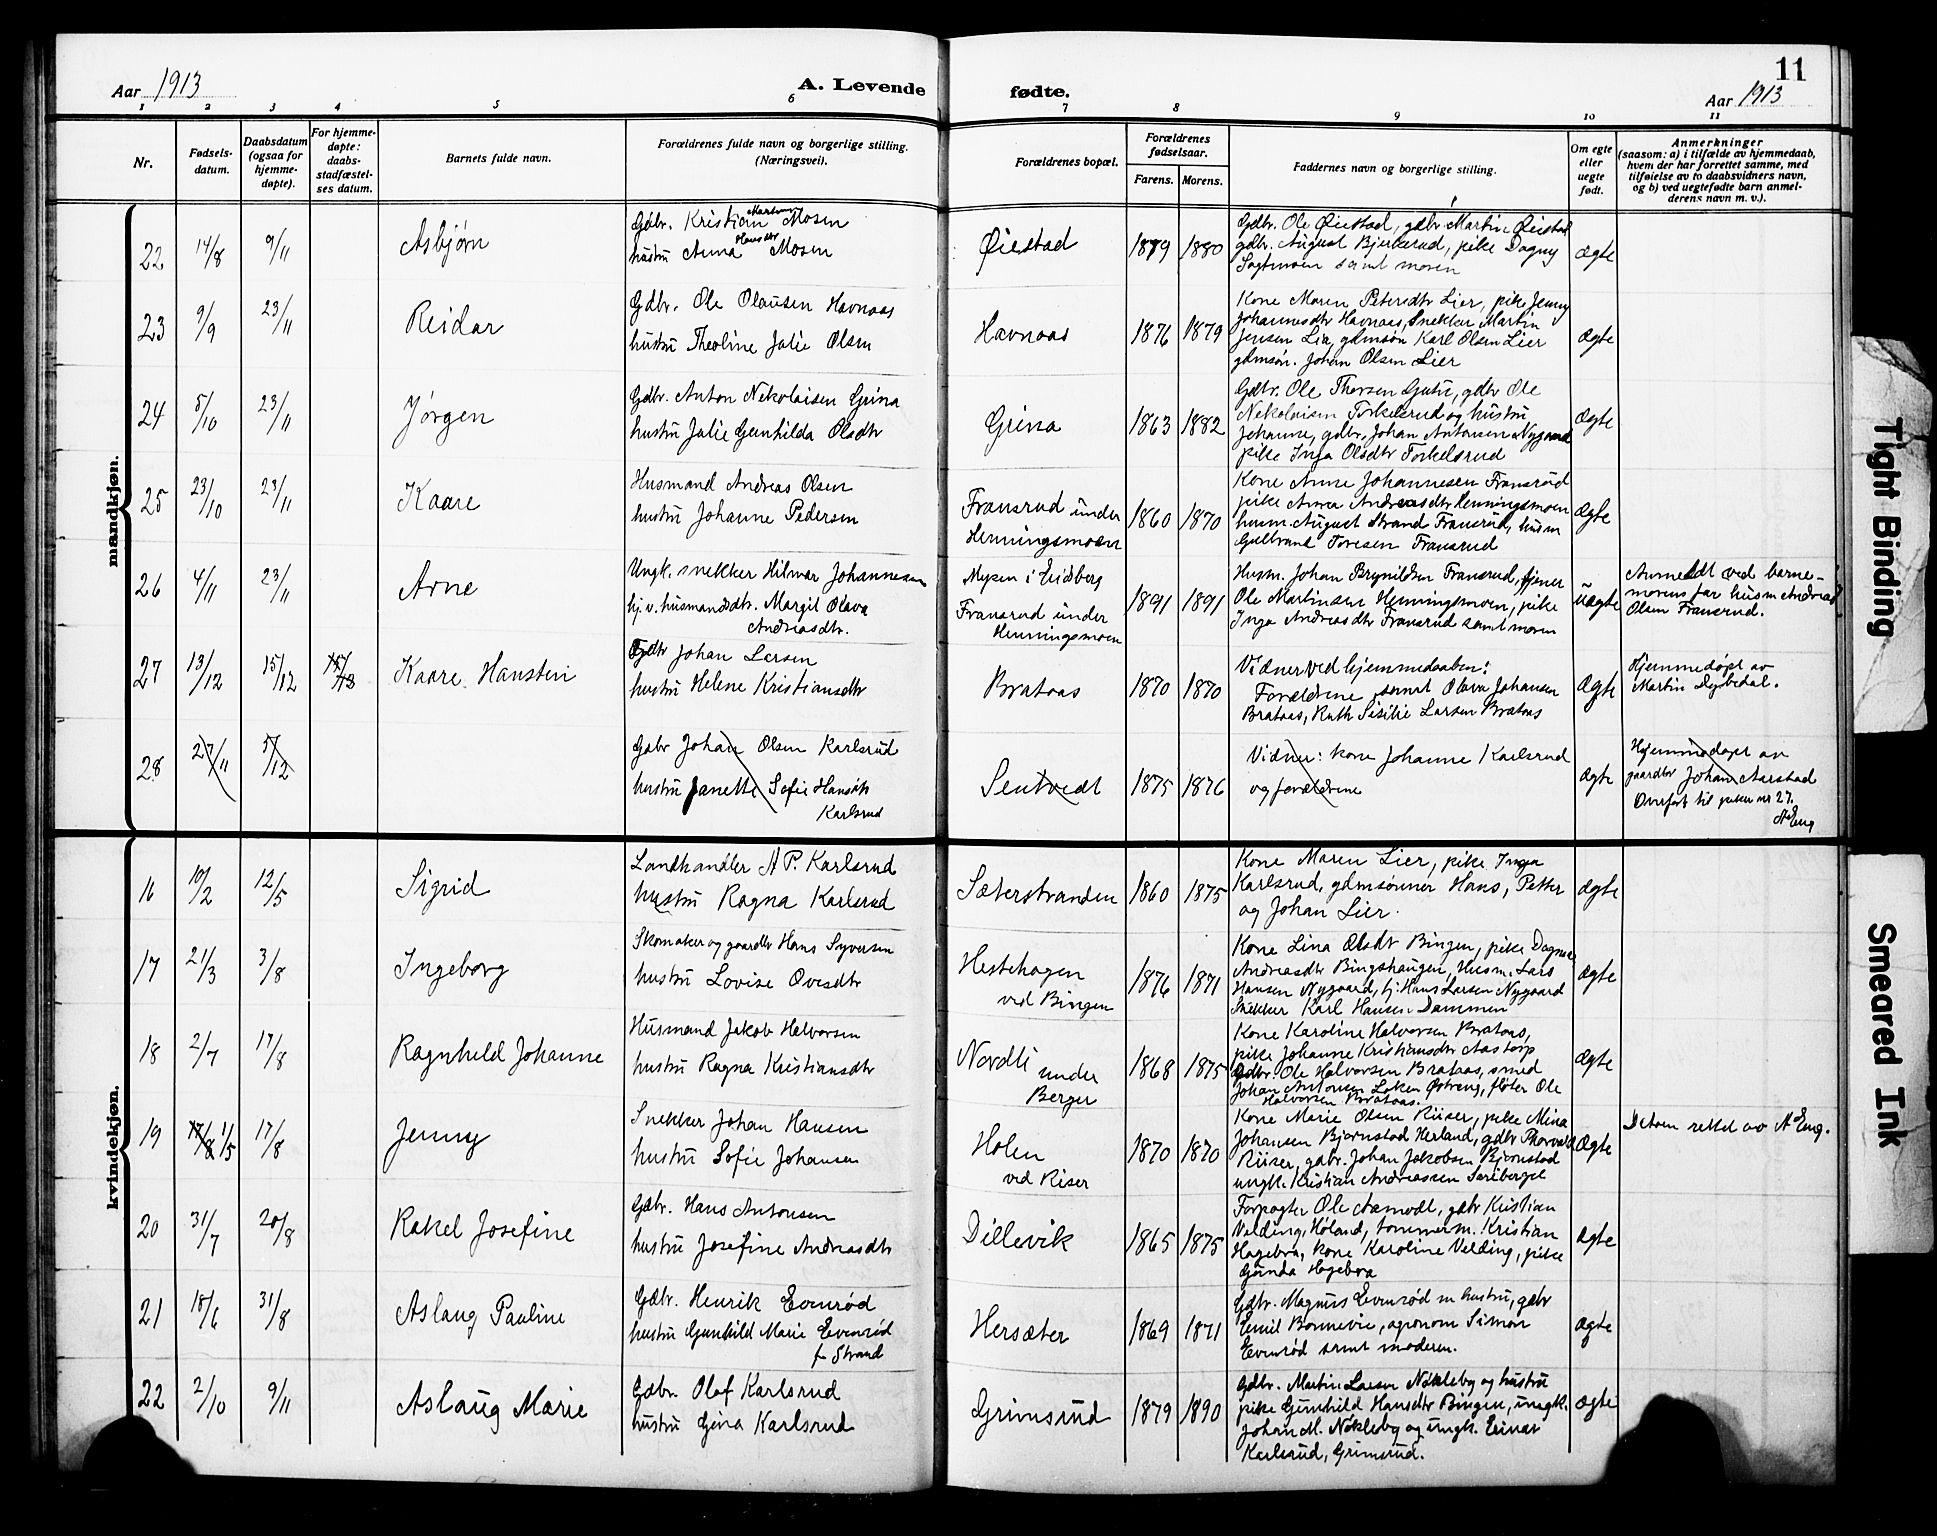 Aar 1913
A. Levende
fødte.
11
Aar 1913
1 2 3 4 5 6 7 8 9 10 11
Nr.
Fødselsdatum.
Daabsdatum (ogsaa for hjemmedøpte).
For hjemmedøpte: daabsstadfæstelses datum.
Barnets fulde navn.
Forældrenes fulde navn og borgerlige stilling. (Næringsvei).
Forældrenes bopæl.
Forældrenes fødselsaar.
Farens. Morens.
Faddernes navn og borgerlige stilling.
Om egte eller uegte født.
Anmerkninger
(saasom: a) i tilfælde av hjemmedaab,
hvem der har forrettet samme, med
tilføielse av to daabsvidners navn,
og b) ved uegtefødte barn anmelderens navn m. v.).
mandkjøn.
22 14/8 9/11 Asbjørn
Gdbr. Kristian Mosen
hustru Anna Hansdtr Mosen
Øiestad 1879 1880
Gdbr. Ole Øiestad, gdbr Martin Øiestad
gdbr. August Bjerkerud, pike Dagny
samt moren
ægte
23 9/9 23/11 Reidar
Gdbr. Ole Olausen Havnaas
hustru Theoline Julie Olsen
Havnaas 1876 1879
Kone Maren Petersdtr Lier, pike Jenny
Johannesdtr Havnaas, Snekker Martin
Jensen Lia, gdmsøn Karl Olsen Lier
gdmsøn. Johan Olsen Lier
ægte
24 5/10 23/11 Jørgen
Gdbr. Anton Nikolaisen Grina
hustru Julie Gunhilda Olsdtr
Grina 1863 1882
Gdbr. Ole Thorsen Gutu, gdbr Ole
Nikolaisen Torkelsrud og hustru
Johanne, gdbr. Johan Antonsen Nygaard
pike Inga Olsdtr Torkelsrud
ægte
25 23/10 23/11 Kaare
Husmand Andreas Olsen
hustru Johanne Pedersen
Fransrud under
Henningsmoen
1860 1870
Kone Anne Johannesen Fransrud
pike Anna Andreasdtr Henningsmoen
husm. August Strand Fransrud, husm
Gulbrand Toresen Fransrud
ægte
26 4/11 23/11 Arne
Ungk. snekker Hilmar Johannesen
hj. v. husmandsdtr. Margit Olava
Andreasdtr.
Mysen i Eidsberg
Fransrud under
Henningsmoen
1891 1891
Husm. Johan Brynildsen Fransrud, tjener
Ole Martinsen Henningsmoen, pike
Inga Andreasdtr Fransrud samt moren
uægte
Anmeldt ved barne-
morens far husm Andreas
Olsen Fransrud.
27 13/12 15/12 Kaare Hanstein
Gdbr Johan Larsen
hustru Helene Kristiansdtr
Brataas 1870 1870
Vidner ved hjemmedaaben:
Forældrene samt Olava Johansen
Brataas, Ruth Sisilie Larsen Brataas
ægte
Hjemmedøpt av
Martin Dybedal.
28 27/11 5/12
Gdbr Johan Olsen Karlsrud
hustru Janette Sofie Hansdtr
Karlsrud
Sentvedt 1875 1876
Vidner: kone Johanne Karlsrud
og forældrene
ægte
Hjemmedøpt av
gaardbr Johan Aarstad
Overført til piker nr 27.
A Eng
kvindekjøn.
16 10/2 12/5 Sigrid
Landhandler A P. Karlsrud
hustru Ragna Karlsrud
Sæterstranden 1860 1875
Kone Maren Lier, pike Inga
Karlsrud, gdmsønner Hans, Petter
og Johan Lier.
ægte
17 21/3 3/8 Ingeborg
Skomaker og gaardbr Hans Syversen
hustru Lovise Ovesdtr
Hestehagen
ved Bingen
1876 1871
Kone Lina Olsdtr Bingen, pike Dagmar
Andreasdtr Bingshaugen, Husm. Lars
Hansen Nygaard, hj. Hans Larsen Nygaard
Snekker Karl Hansen Dammen
ægte
18 2/7 17/8 Ragnhild Johanne
Husmand Jakob Halvorsen
hustru Ragna Kristiansdtr
Nordli under
Berger
1868 1875
Kone Karoline Halvorsen Brataas,
pike Johanne Kristiansdtr Aastorp
Gdbr. Ole Halvorsen Brataas, smed
Johan Antonsen Løken Østreng, fløter Ole
Halvorsen Brataas.
ægte
19 17/8 1/5 17/8 Jenny
Snekker Johan Hansen
hustru Sofie Johansen
Holen
ved Riser
1870 1870
Kone Marie Olsen Riiser, pike Mina
Johansen Bjørnstad Herland, gdbr Thorvald
Riiser, gdbr. Johan Jakobsen Bjørnstad
ungk. Kristian Andreassen
ægte
Datoen rettet av A Eng.
20 31/7 20/8 Rakel Josefine
Gdbr. Hans Antonsen
hustru Josefine Andreasdtr
Dillevik 1865 1875
Forpagter Ole Aamodt, gdbr Kristian
Velding, Høland, tømmerm. Kristian
Hagebra, kone Karoline Velding, pike
Gunda Hagebra
ægte
21 18/6 31/8 Aslaug Pauline
Gdbr. Henrik Evenrød
hustru Gunhild Marie Evenrød
f. Strand
Hersæter 1869 1871
Gdbr. Magnus Evenrød m hustru, gdbr
Emil Bonnevie, agronom Simon
Evenrød samt moderen.
ægte
22 2/10 9/11 Aslaug Marie
Gdbr. Olaf Karlsrud
hustru Gina Karlsrud
Grimsrud 1879 1890
Gdbr. Martin Larsen Nøkleby og hustru
pike Gunhild Hansdtr Bingen, ungk.
Johan M. Nøkleby og ungk. Einar
Karlsrud, Grimsrud.
ægte
Tight Binding
Smeared Ink